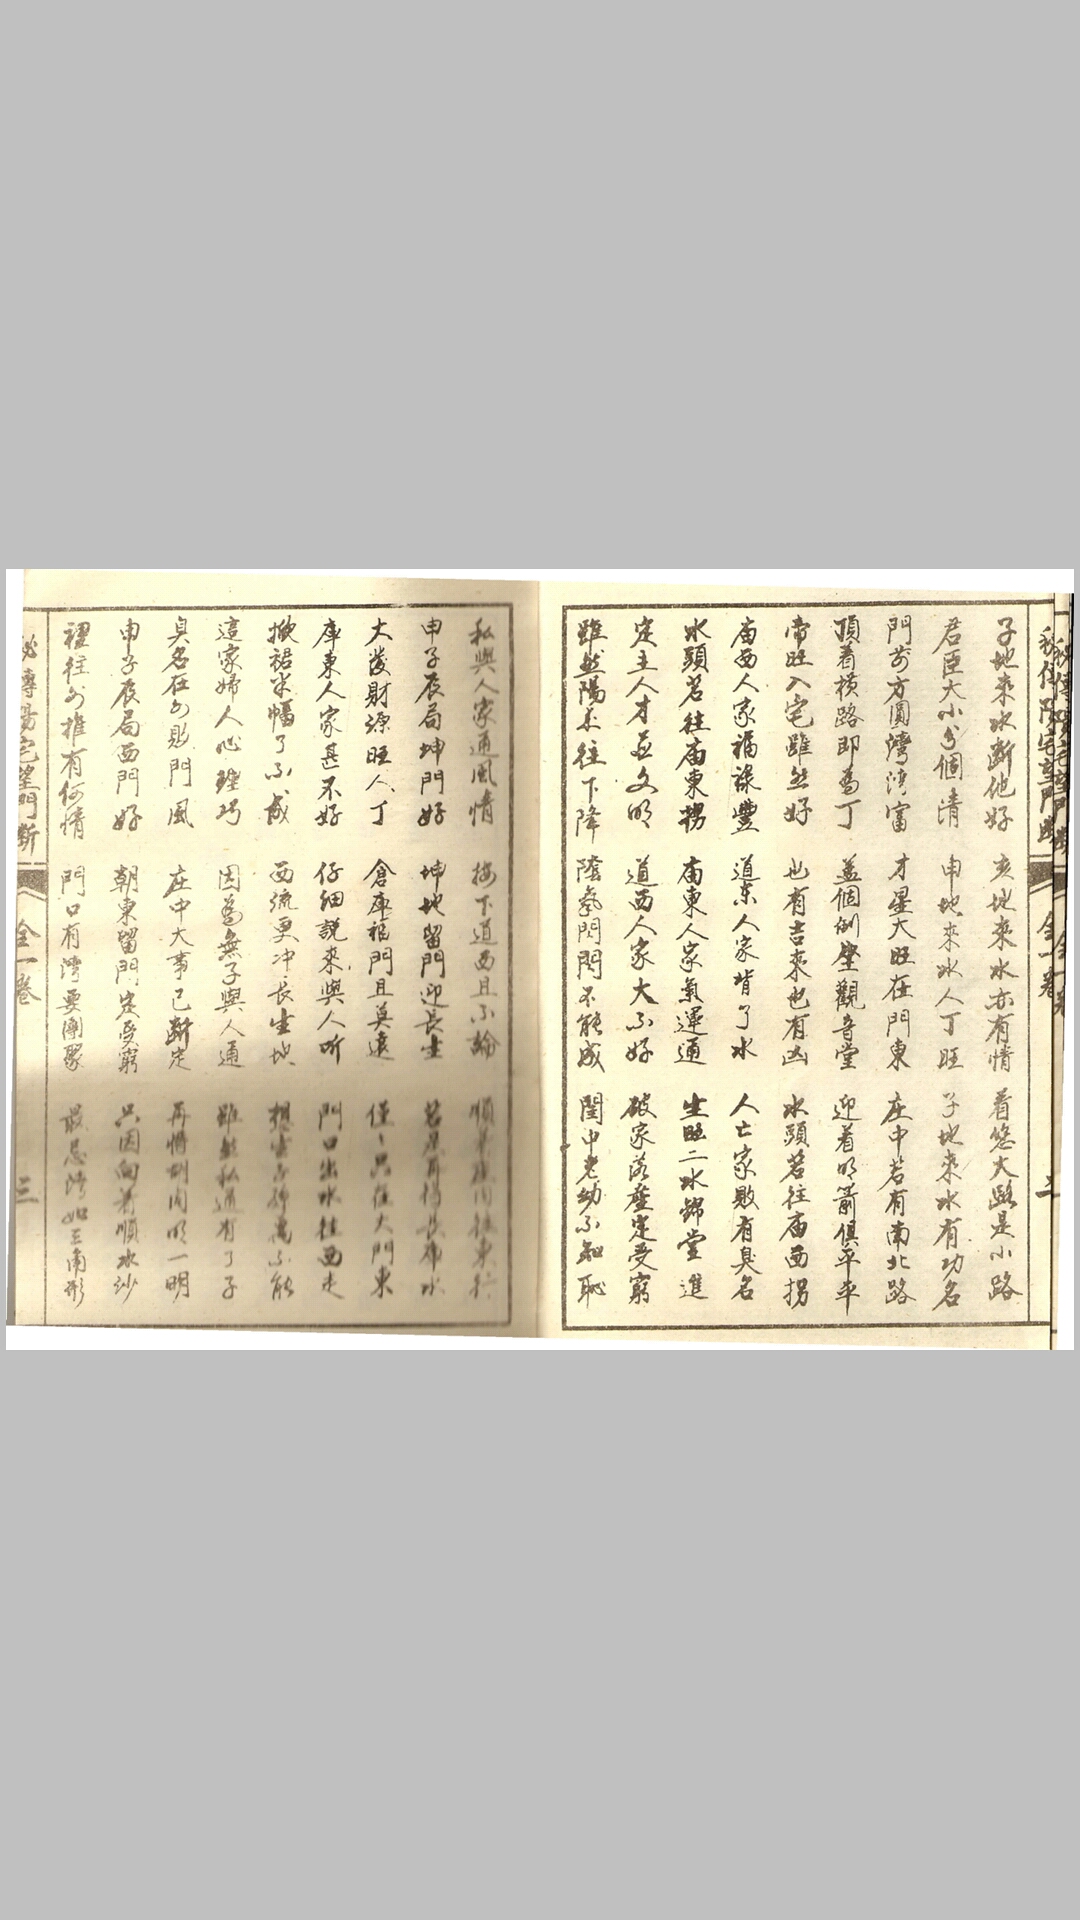 秘傳陽宅望門斷 全一卷 二
子地來水斷他好 亥地來水亦有情 看您大路是小路
君臣大小分個清 申地來水人丁旺 子地來水有功名
門前方圓灣灣富 才星大旺在門東 庄中若有南北路
頂着橫路即為丁 蓋個倒座觀音堂 迎着明箭俱平平
帝旺入宅雖然好 也有吉來也有凶 水頭若往庙西拐
庙西人家福祿豐 道東人家背了水 人亡家敗有臭名
水頭若往庙東拐 庙東人家氣運通 生旺二水錦堂進
定主人才並文明 道西人家大不好 破家落產定受窮
雖然陽水往下降 陰氣閃閃不能成 閨中老幼不知恥
私與人家通風情 按下道西且不論 順着庄內往東行
申子辰局坤門好 坤地留門迎長生 若是再得長庫水
大發財源旺人丁 倉庫福門且莫遠 僅僅只在大門東
庫東人家甚不好 仔細說來與人听 門口出水往西走
掀裙半幅了不成 西流更冲長生地 想生子孫萬不能
這家婦人心理巧 因為無子與人通 雖然私通有了子
臭名在外敗門風 庄中大事已斷定 再將別內明一明
申子辰局西門好 朝東留門定受窮 只因向着順水沙
裡往外推有何情 門口有灣要團聚 最忌灣如三角形
秘傳陽宅望門斷 全一卷 三